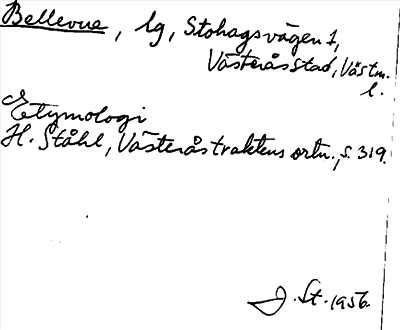 Bellevue, lg, Stohagsvägen 1,
Västerås stad, Västm.
l.
Etymologi
H. Ståhl, Västeråstraktens ortn., s. 319.
J. St. 1956.